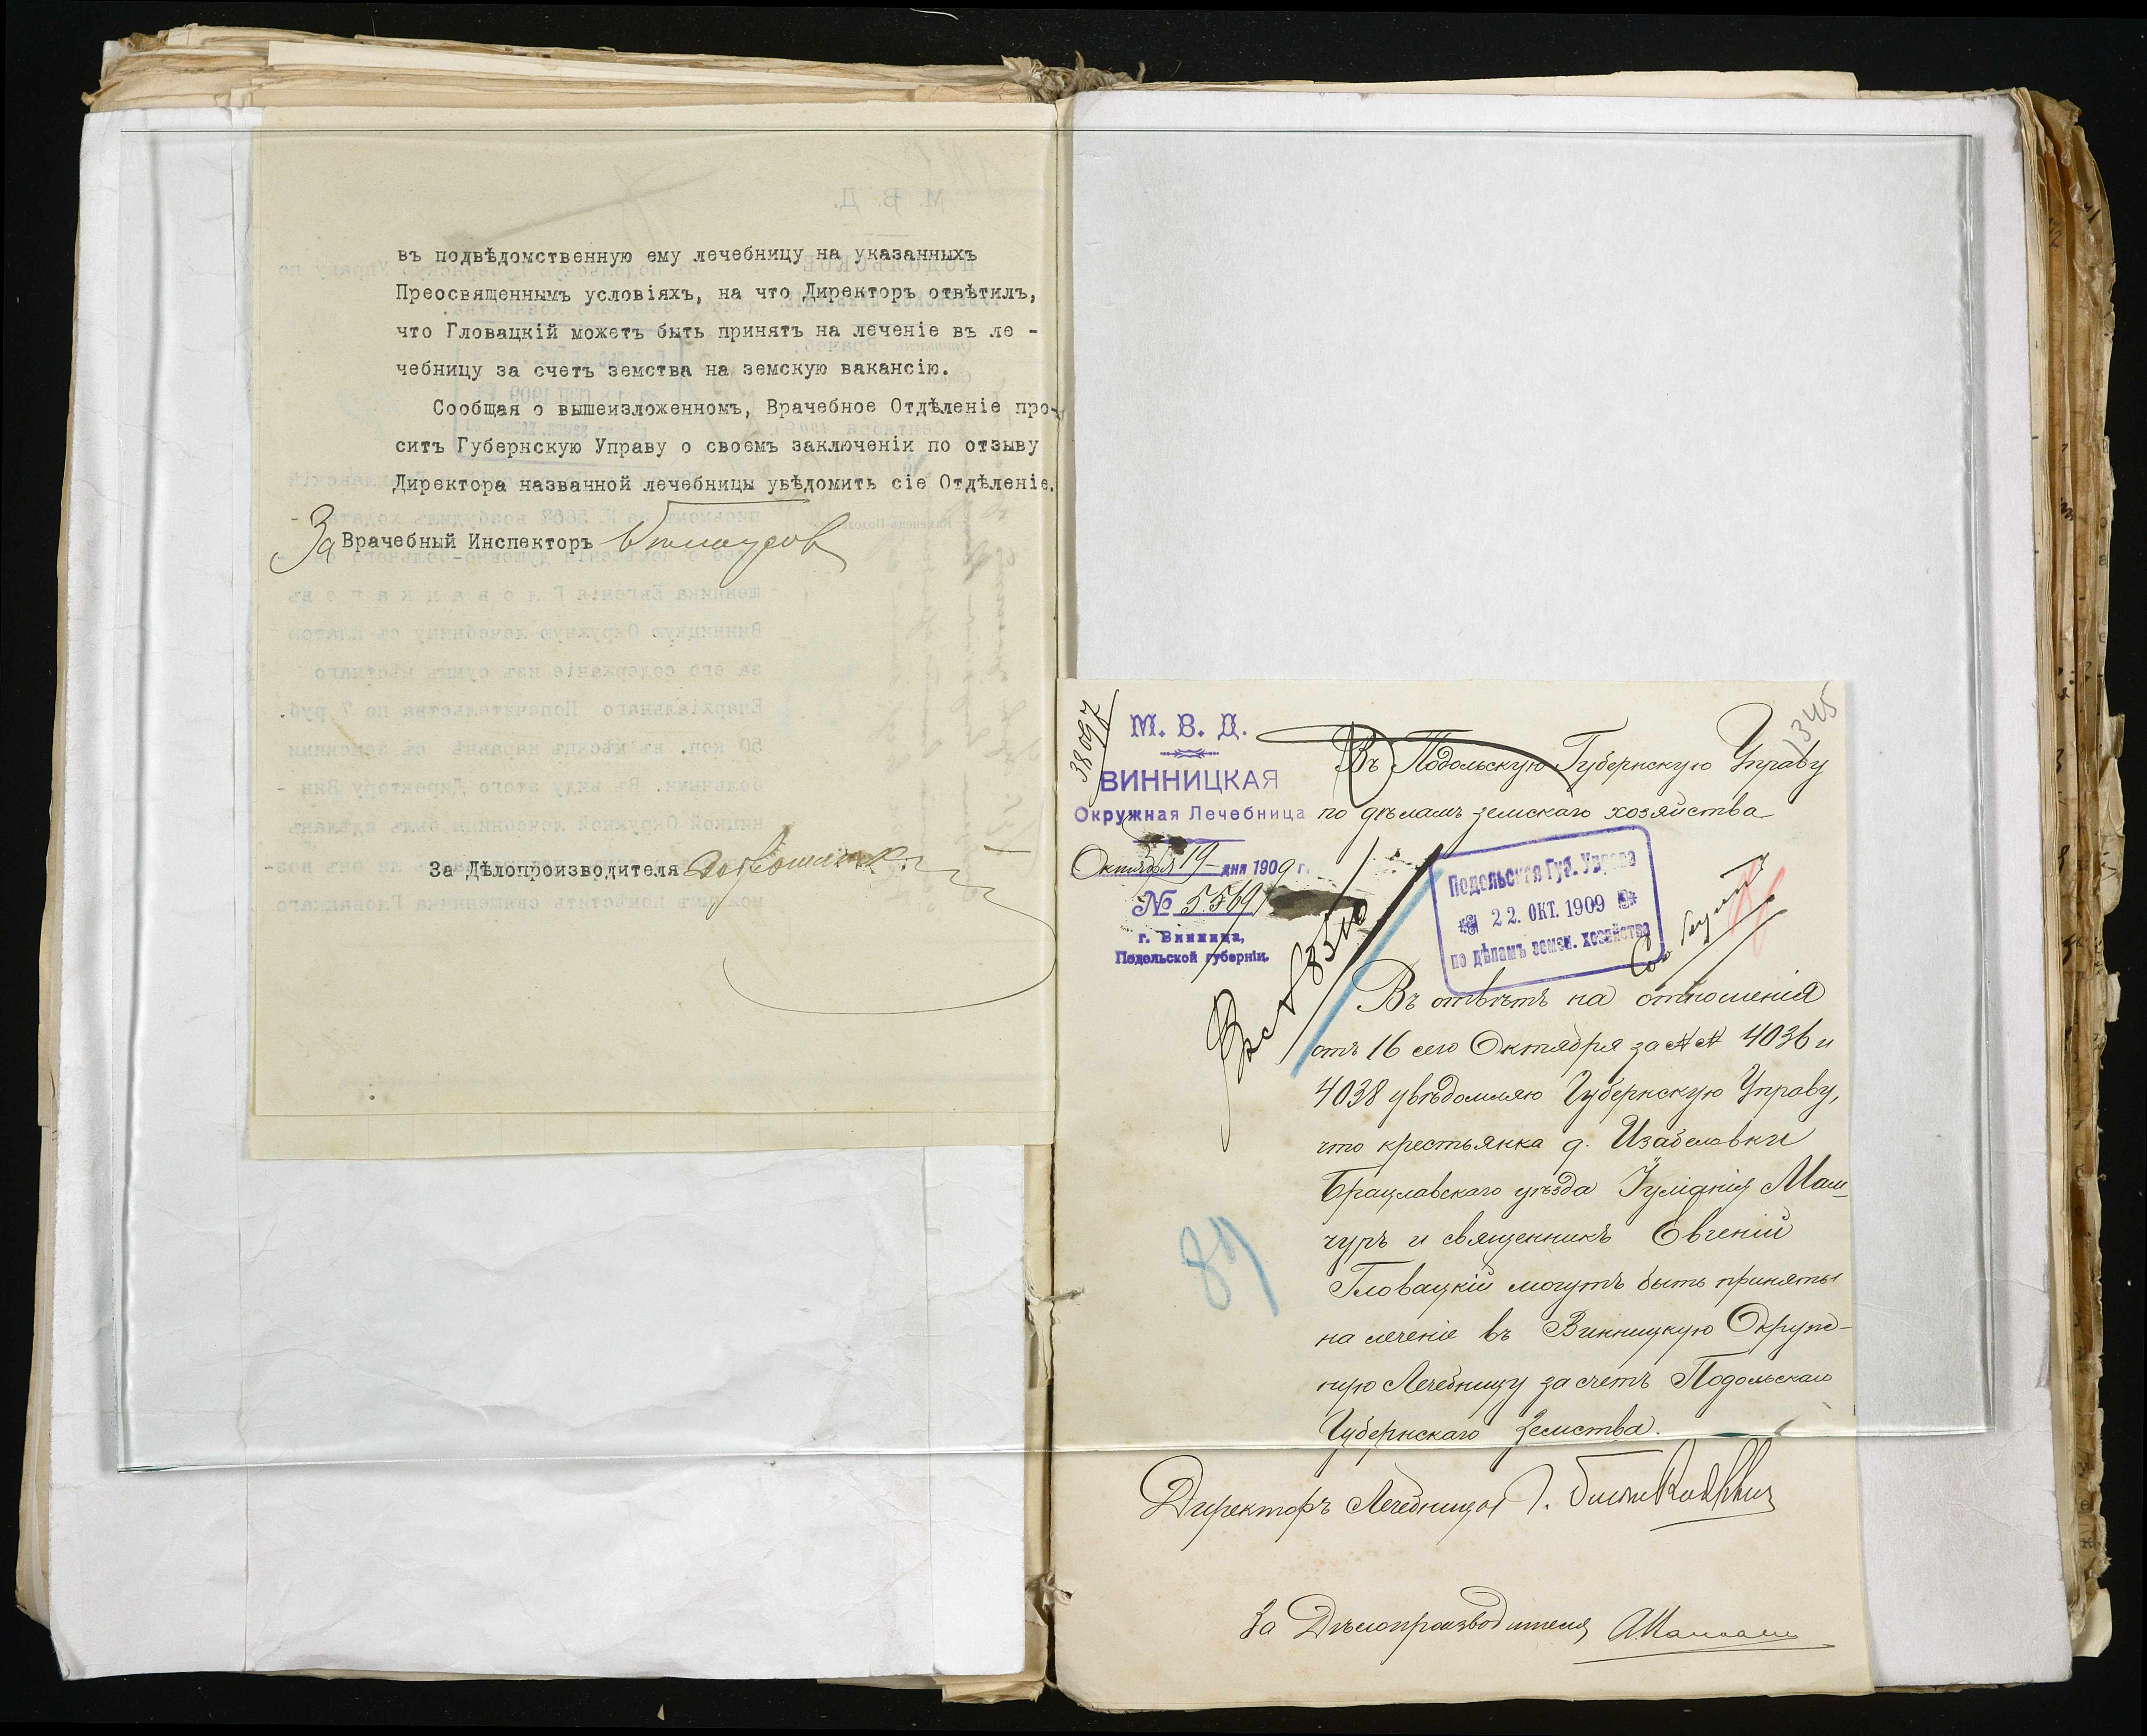 въ подвѣдомственную ему лечебницу на указанныхъ
Преосвященнымъ условіяхъ, на что Директоръ отвѣтилъ,
что Гловацкій можетъ быть принятъ на леченіе въ ле -
чебницу за счетъ земства на земскую вакансію.
Сообщая о вышеизложенномъ, Врачебное Отдѣленіе про-
ситъ Губернскую Управу о своемъ заключеніи по отзыву
Директора названной лечебницы увѣдомить сіе Отдѣленіе.
За Врачебный Инспекторъ
За Дѣлопроизводителя
38097
1345
М. В. Д.
ВИННИЦКАЯ
Окружная Лечебница
Октября 19 дня 1909 г.
№ 5569
г. Винница,
Подольской губерніи.
Въ Подольскую Губернскую Управу
по дѣламъ земскаго хозяйства
Подольская Губ. Управа
22. ОКТ. 1909
по дѣламъ земск. хозяйства
Въ отвѣтъ на отношенія
отъ 16 сего Октября за №№ 4036 и
4038 увѣдомляю Губернскую Управу,
что крестьянка д. Изабеловки
Брацлавскаго уѣзда
чуръ и священникъ Евгеній
Гловацкій могутъ быть приняты
на леченіе въ Винницкую Окруж-
ную Лечебницу за счетъ Подольскаго
Губернскаго Земства.
89
Директоръ Лечебницы
За Дѣлопроизводителя